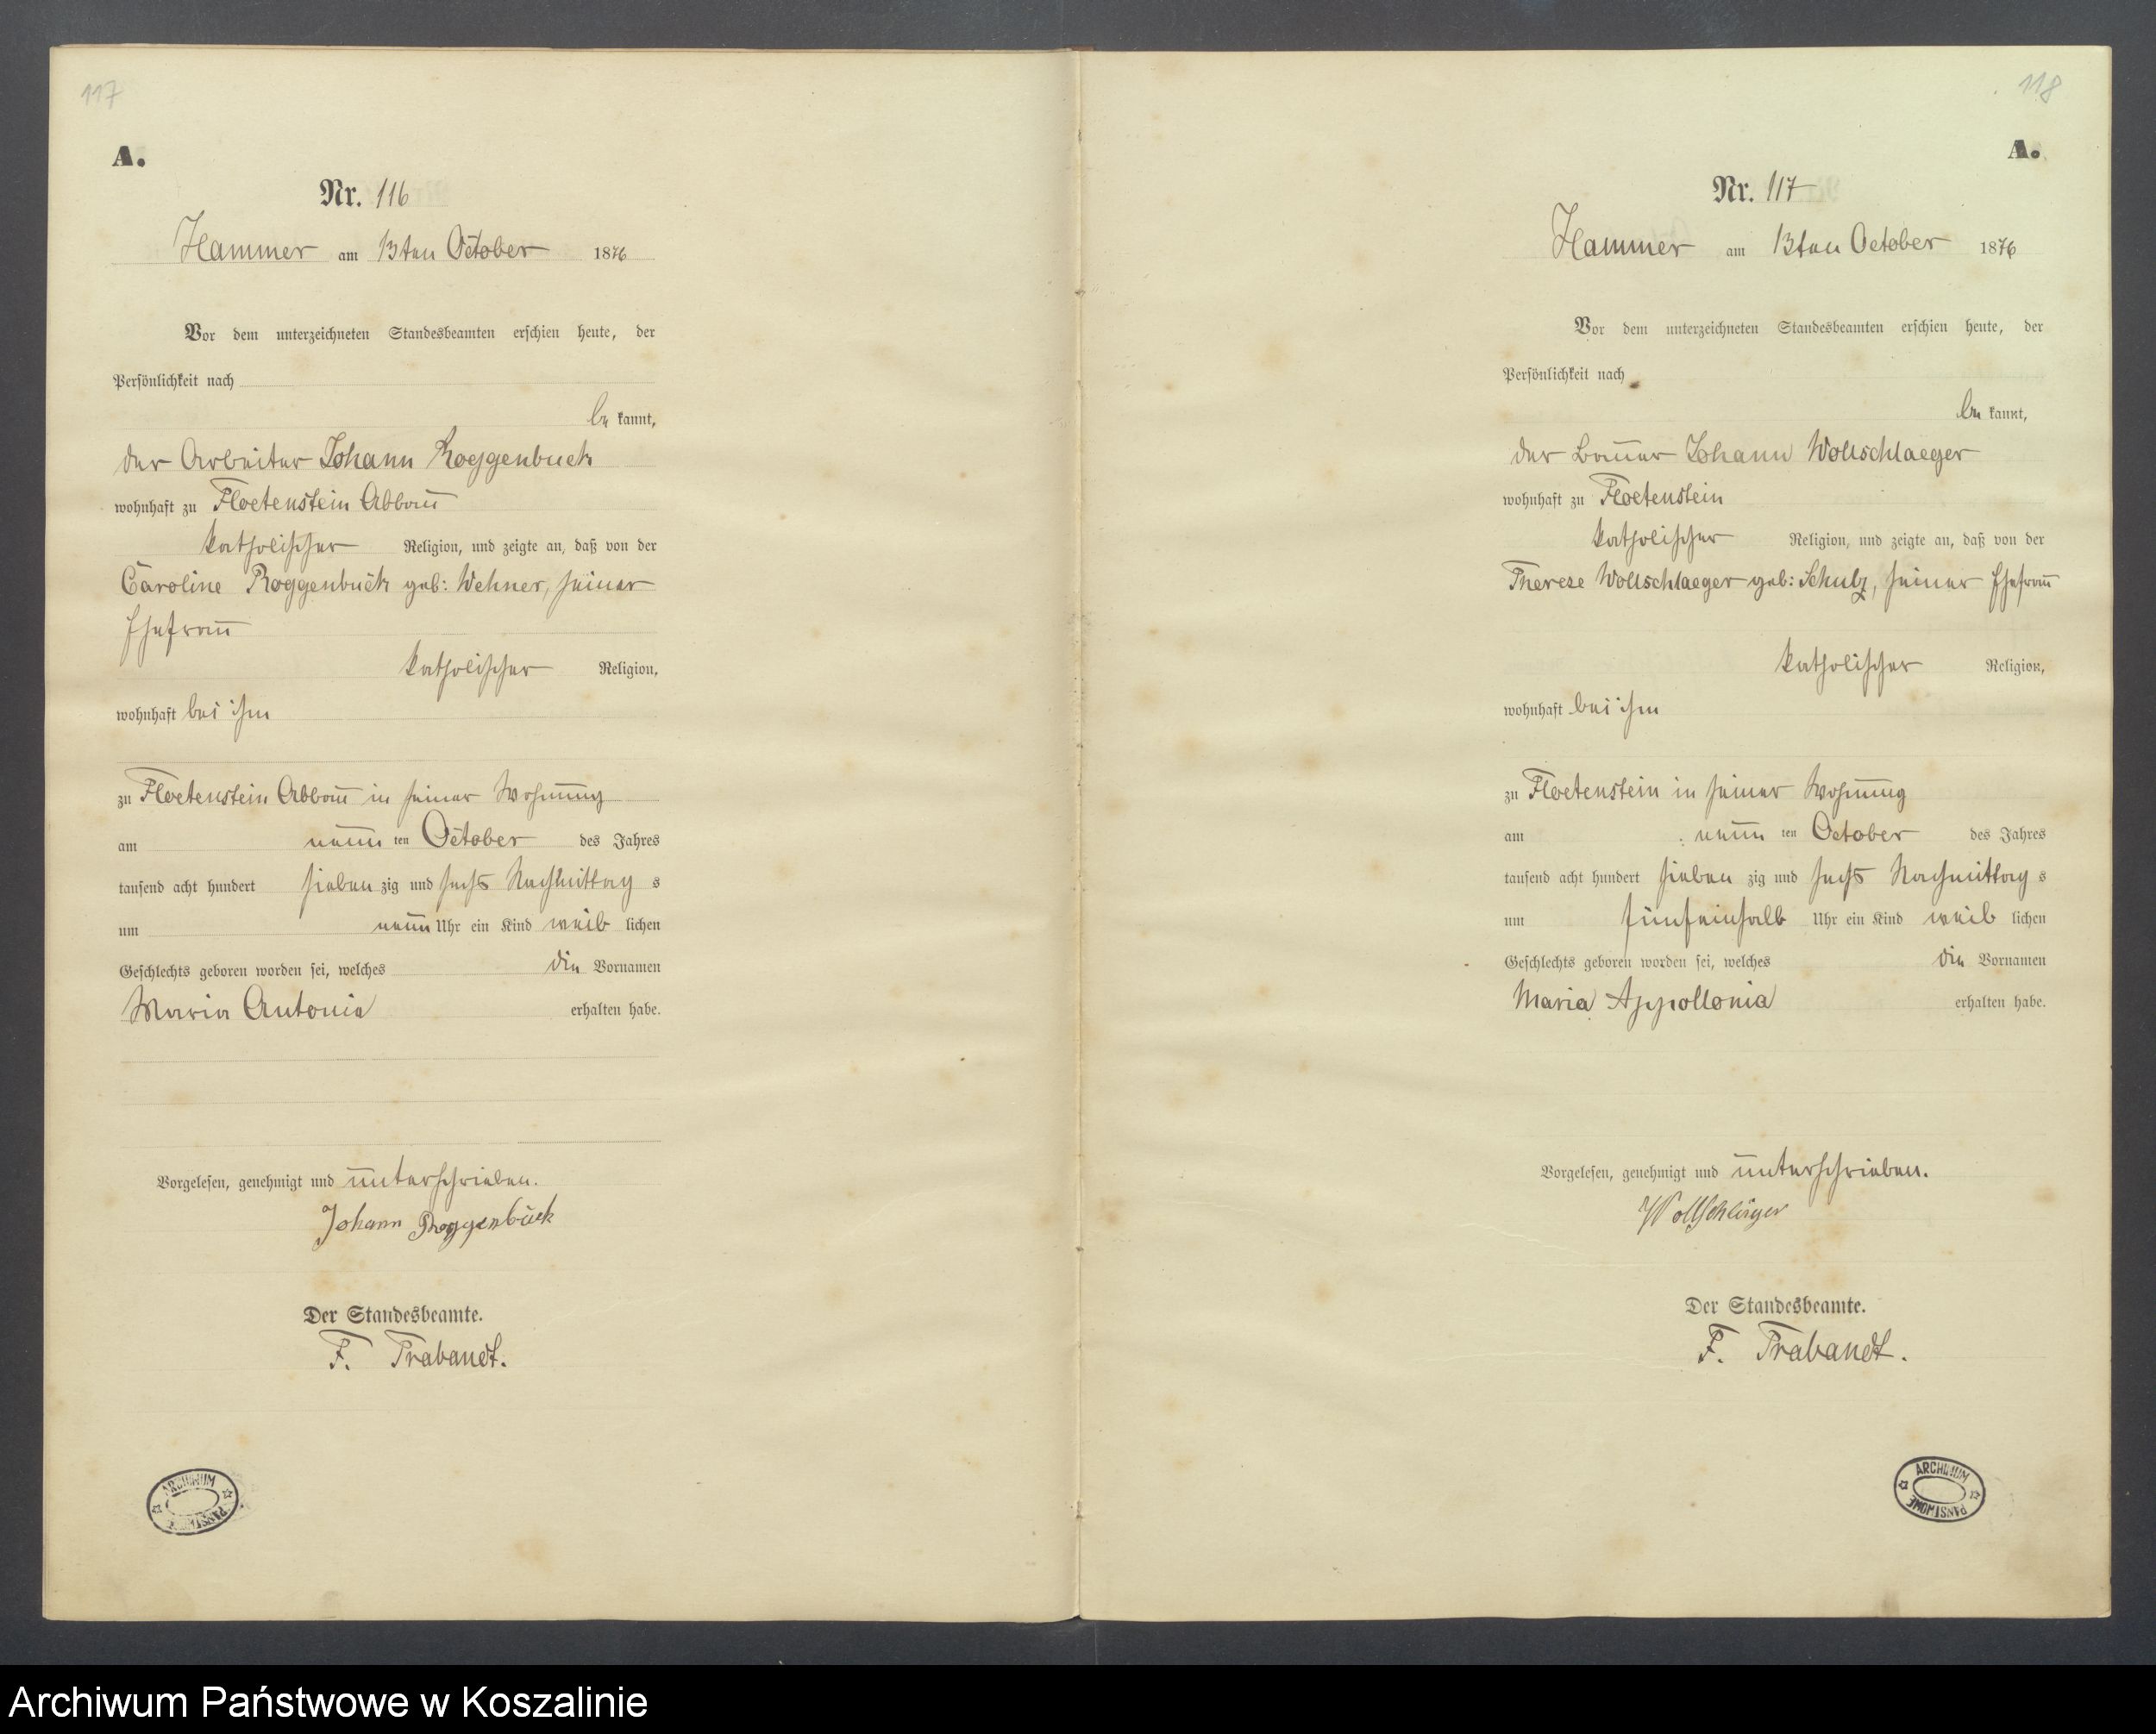 117
A.
Nr. 116
Hammer am 13ten October 1876
Vor dem unterzeichneten Standesbeamten erschien heute, der
Persönlichkeit nach
be kannt,
der Arbeiter Johann Roggenbuck
wohnhaft zu Floetenstein Abbau
katholischer Religion, und zeigte an, daß von der
Caroline Roggenbuck geb: Wehner, seiner
Ehefrau
katholischer Religion,
wohnhaft bei ihm
zu Floetenstein Abbau in seiner Wohnung
am neun ten October des Jahres
tausend acht hundert sieben zig und sechs Nachmittag s
um neun Uhr ein Kind weib lichen
Geschlechts geboren worden sei, welches die Vornamen
Maria Antonia erhalten habe.
Vorgelesen, genehmigt und unterschrieben.
Johann Roggenbuck
Der Standesbeamte.
F. Trabandt.
ARCHIWUM PAŃSTWOWE
118
A.
Nr. 117
Hammer am 13ten October 1876
Vor dem unterzeichneten Standesbeamten erschien heute, der
Persönlichkeit nach
be kannt,
der Bauer Johann Wollschlaeger
wohnhaft zu Floetenstein
katholischer Religion, und zeigte an, daß von der
Therese Wollschlaeger geb: Schulz, seiner Ehefrau
katholischer Religion,
wohnhaft bei ihm
zu Floetenstein in seiner Wohnung
am neun ten October des Jahres
tausend acht hundert sieben zig und sechs Nachmittag s
um fünfeinhalb Uhr ein Kind weib lichen
Geschlechts geboren worden sei, welches die Vornamen
Maria Appollonia erhalten habe.
Vorgelesen, genehmigt und unterschrieben.
Wollschläger
Der Standesbeamte.
F. Trabandt.
ARCHIWUM PAŃSTWOWE
Archiwum Państwowe w Koszalinie